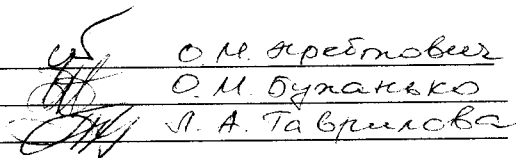 О.М. Кребтович
О.М. Буханько
Л.А. Гаврилова